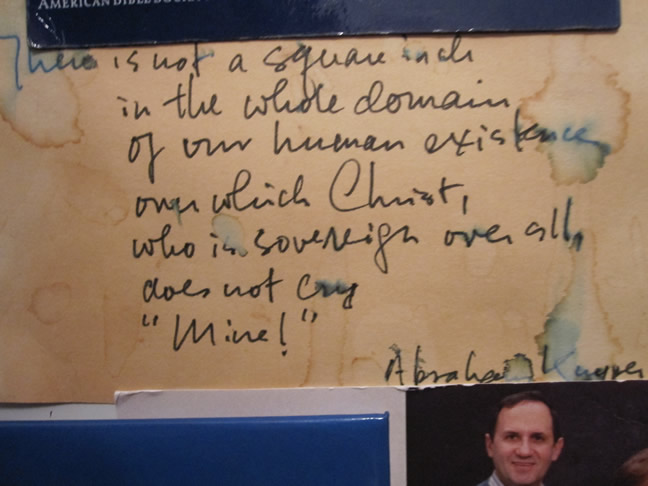 AMERICAN BIBLE SOCIE
There is not a square inch
in the whole domain
of our human existence
over which Christ,
who is sovereign over all,
does not cry
"Mine!"
Abraham Kuyper